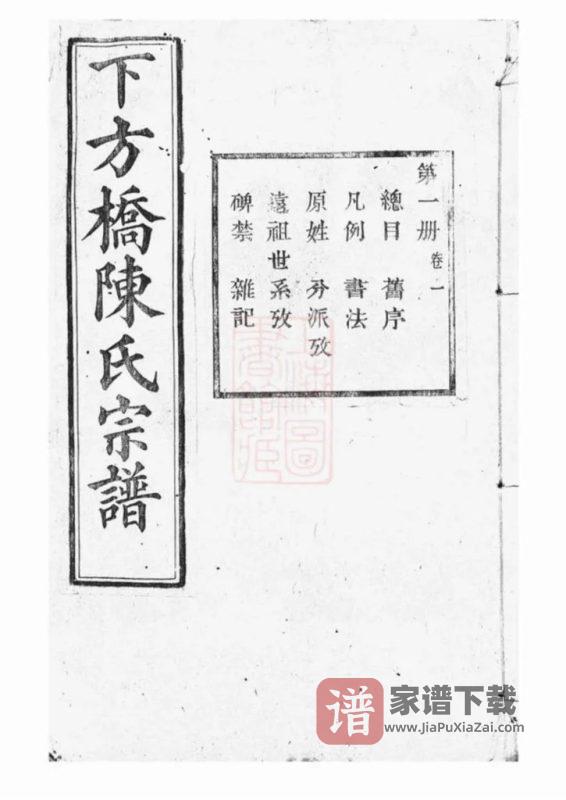 下方橋陳氏宗譜
第一册 卷一
總目 舊序
凡例 書法
原姓 分派攷
遠祖世系攷
碑禁 雜記
上海圖
書館藏
譜 家谱下载
www.JiaPuXiaZai.com